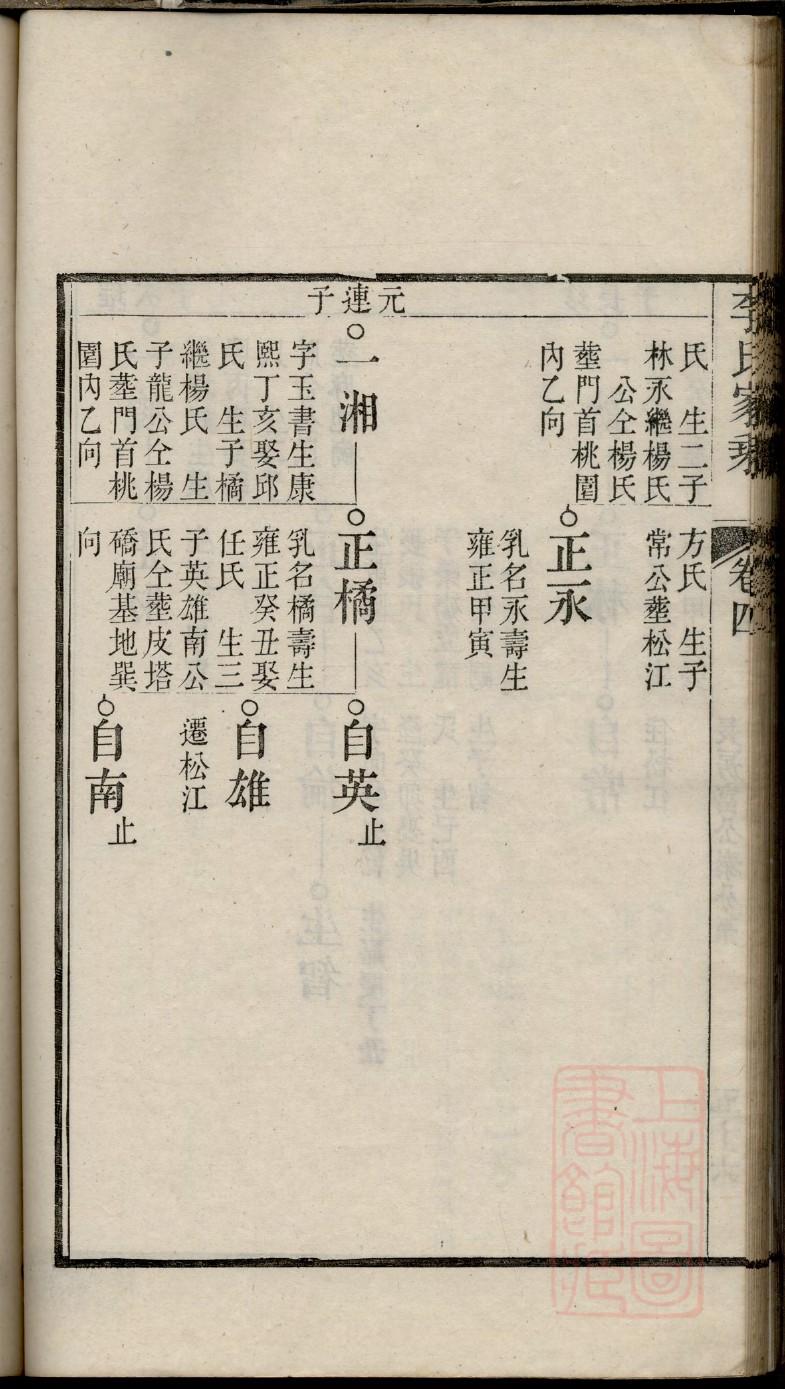 李氏家乘
卷四
氏　生二子
林永繼楊氏
公仝楊氏
塟門首桃園
內乙向
方氏　生子
常公塟松江
正永
乳名永壽生
雍正甲寅
元連子
一湘
字玉書生康
熙丁亥娶邱
氏　生子橘
繼楊氏　生
子龍公仝楊
氏塟門首桃
園內乙向
正橘
乳名橘壽生
雍正癸丑娶
任氏　生三
子英雄南公
氏仝塟皮塔
碻廟基地巽
向
自英
止
自雄
遷松江
自南
止
上海圖書館藏